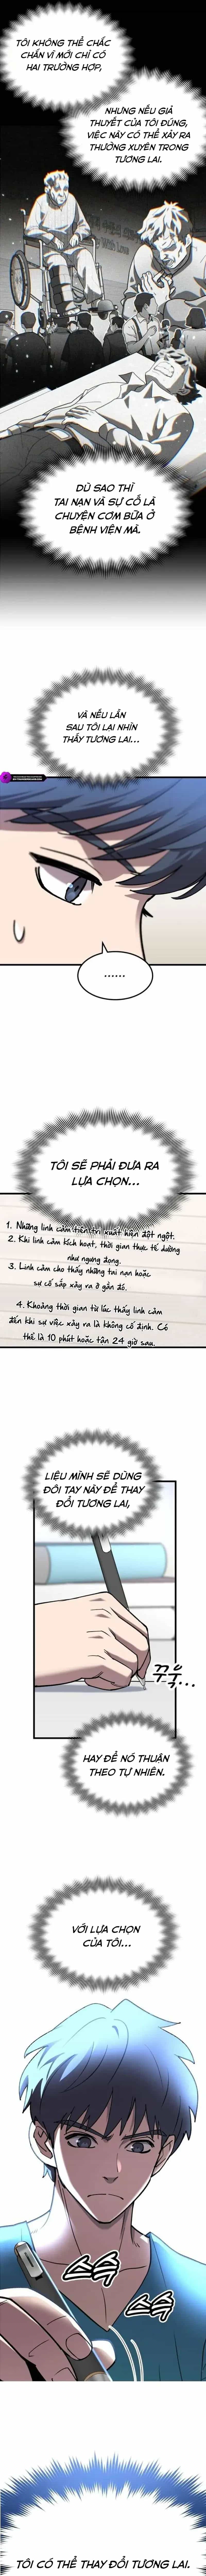 TÔI KHÔNG THỂ CHẮC
CHẮN VÌ MỚI CHỈ CÓ
HAI TRƯỜNG HỢP,
NHƯNG NẾU GIẢ
THUYẾT CỦA TÔI ĐÚNG,
VIỆC NÀY CÓ THỂ XẢY RA
THƯỜNG XUYÊN TRONG
TƯƠNG LAI.
With Love
DÙ SAO THÌ
TAI NẠN VÀ SỰ CỐ LÀ
CHUYỆN CƠM BỮA Ở
BỆNH VIỆN MÀ.
VÀ NẾU LẦN
SAU TÔI LẠI NHÌN
THẤY TƯƠNG LAI...
......
TÔI SẼ PHẢI ĐƯA RA
LỰA CHỌN...
1. Những linh cảm tiên tri xuất hiện đột ngột.
2. Khi linh cảm kích hoạt, thời gian thực tế dường
như ngưng đọng.
3. Linh cảm cho thấy những tai nạn hoặc
sự cố sắp xảy ra ở gần đó.
4. Khoảng thời gian từ lúc thấy linh cảm
đến khi sự việc xảy ra là không cố định. Có
thể là 10 phút hoặc tận 24 giờ sau.
LIỆU MÌNH SẼ DÙNG
ĐÔI TAY NÀY ĐỂ THAY
ĐỔI TƯƠNG LAI,
꾸욱...
HAY ĐỂ NÓ THUẬN
THEO TỰ NHIÊN.
VỚI LỰA CHỌN
CỦA TÔI...
슥
슥
TÔI CÓ THỂ THAY ĐỔI TƯƠNG LAI.